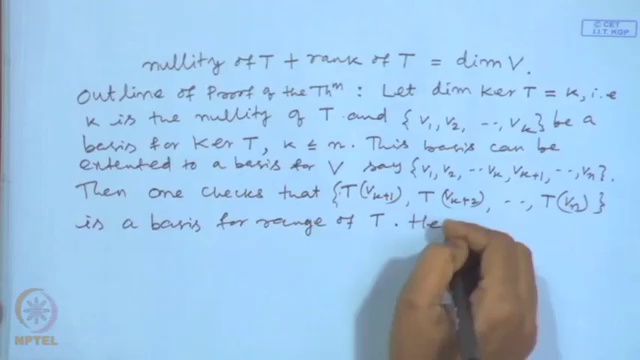 © CET
I.I.T. KGP
nullity of T + rank of T = dim V.
Outline of Proof of the Thm : Let dim Ker T = k, i.e
k is the nullity of T and {v1, v2, ..., vk} be a
basis for Ker T, k ≤ n. This basis can be
extented to a basis for V say {v1, v2, ... vk, vk+1, ..., vn}.
Then one checks that {T(vk+1), T(vk+2), ..., T(vn)}
is a basis for range of T. He
NPTEL